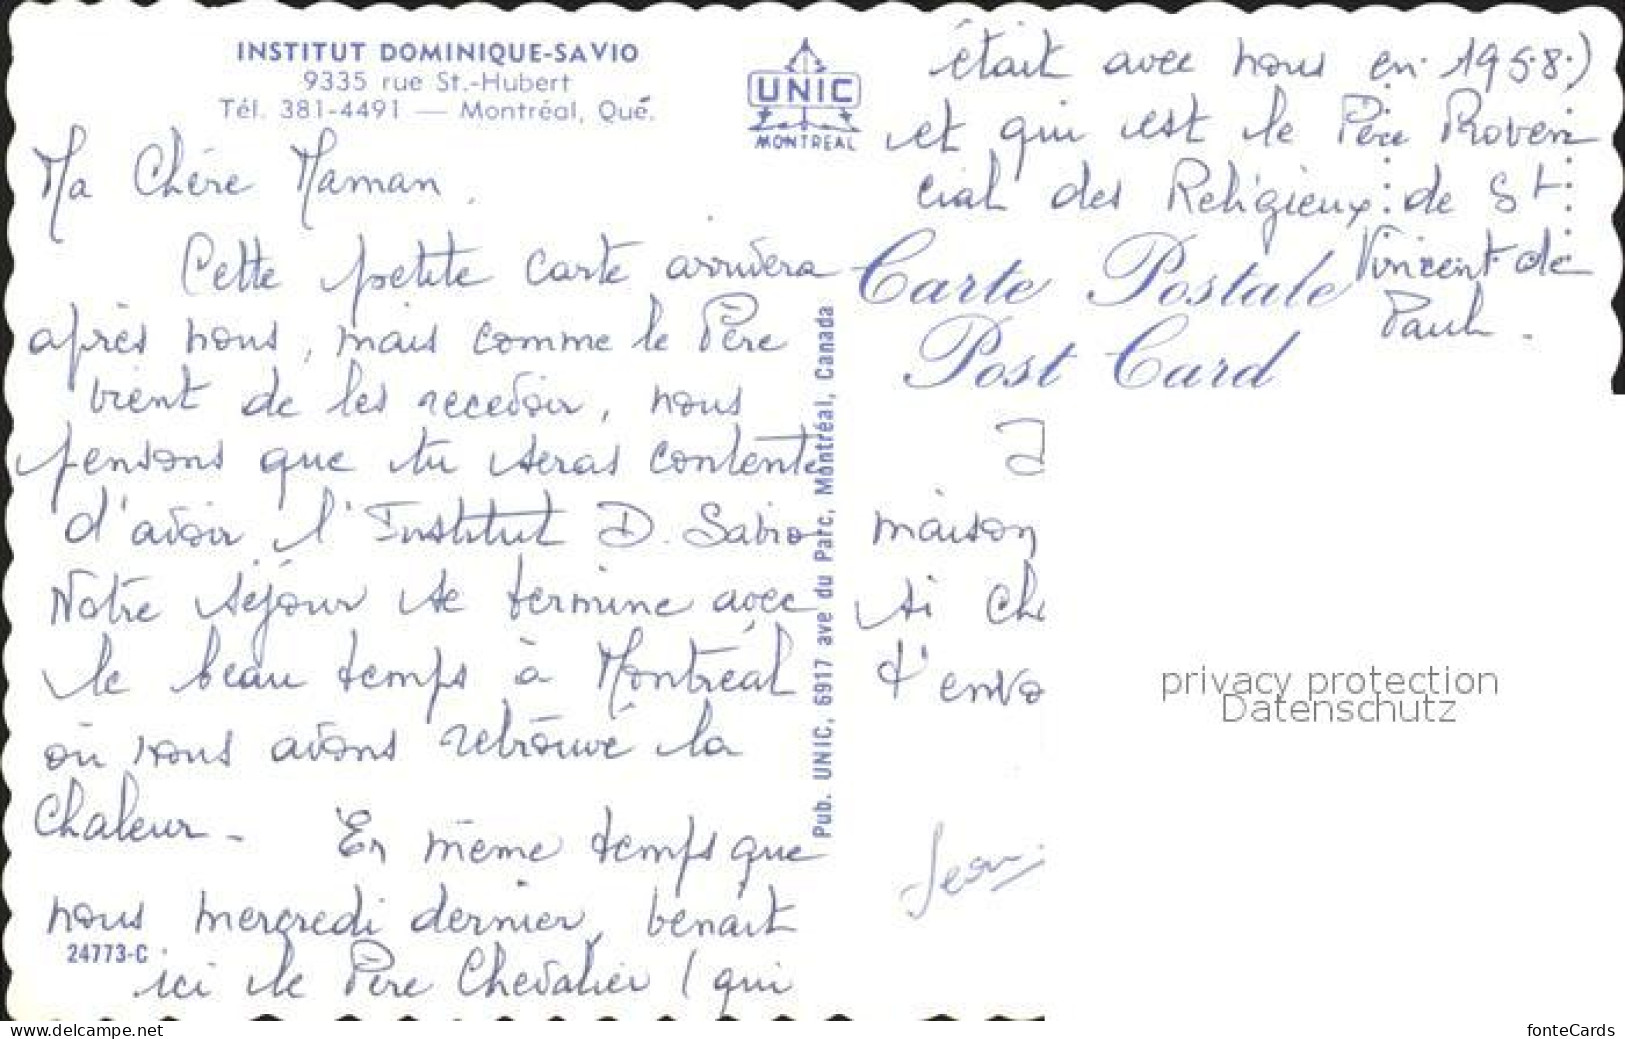 INSTITUT DOMINIQUE-SAVIO
9335 rue St.-Hubert
Tél. 381-4491 — Montréal, Qué.
UNIC
MONTREAL
Ma Chère Maman,
Cette petite carte arrivera
après nous, mais comme le Père
vient de les recevoir, nous
pensons que tu seras contente
d'avoir l'Institut D. Savio
Notre séjour se termine avec
le beau temps à Montréal
où nous avons retrouvé la
chaleur - En même temps que
nous mercredi dernier, venait
24773-C
ici le Père Chevalier (qui
était avec nous en 1958)
et qui est le Père Proven
cial des Religieux de St
Vincent de
Paul.
Carte Postale
Post Card
Pub. UNIC, 6917 ave du Parc, Montréal, Canada
J
maison
si ch
t'envo
Jean
privacy protection
Datenschutz
www.delcampe.net
fonteCards